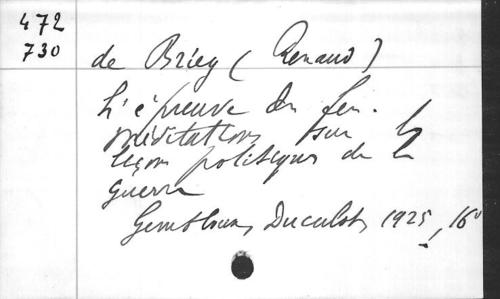 472
730
de Briey (Renaud)
L'épreuve du feu.
méditations sur les
leçons politiques de la
guerre
Gembloux, Duculot, 1925, 16°